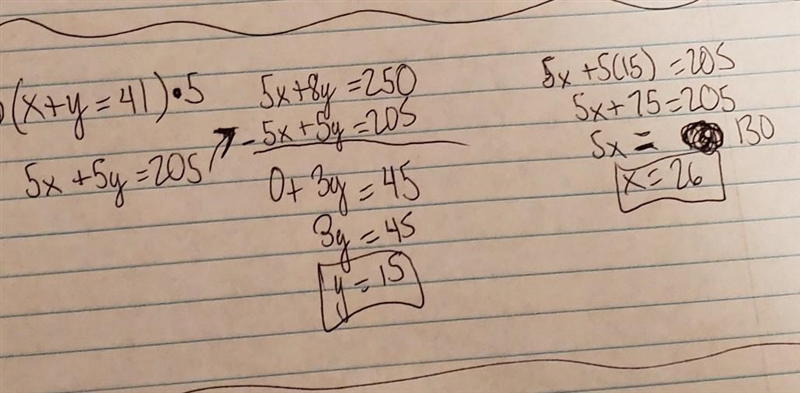 (x+y=41)•5
5x+5y=205
5x+8y=250
-5x+5y=205
0+3y=45
3y=45
y=15
5x+5(15)=205
5x+75=205
5x= 130
x=26